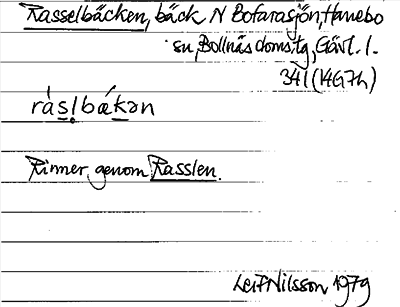 Rasselbäcken, bäck N Bofarasjön, Hanebo
sn, Bollnäs doms:tg, Gävl. l.
341 (14G7h)
rás̲l̥bák̲ən
Rinner genom Rasslen.
Leif Nilsson 1979